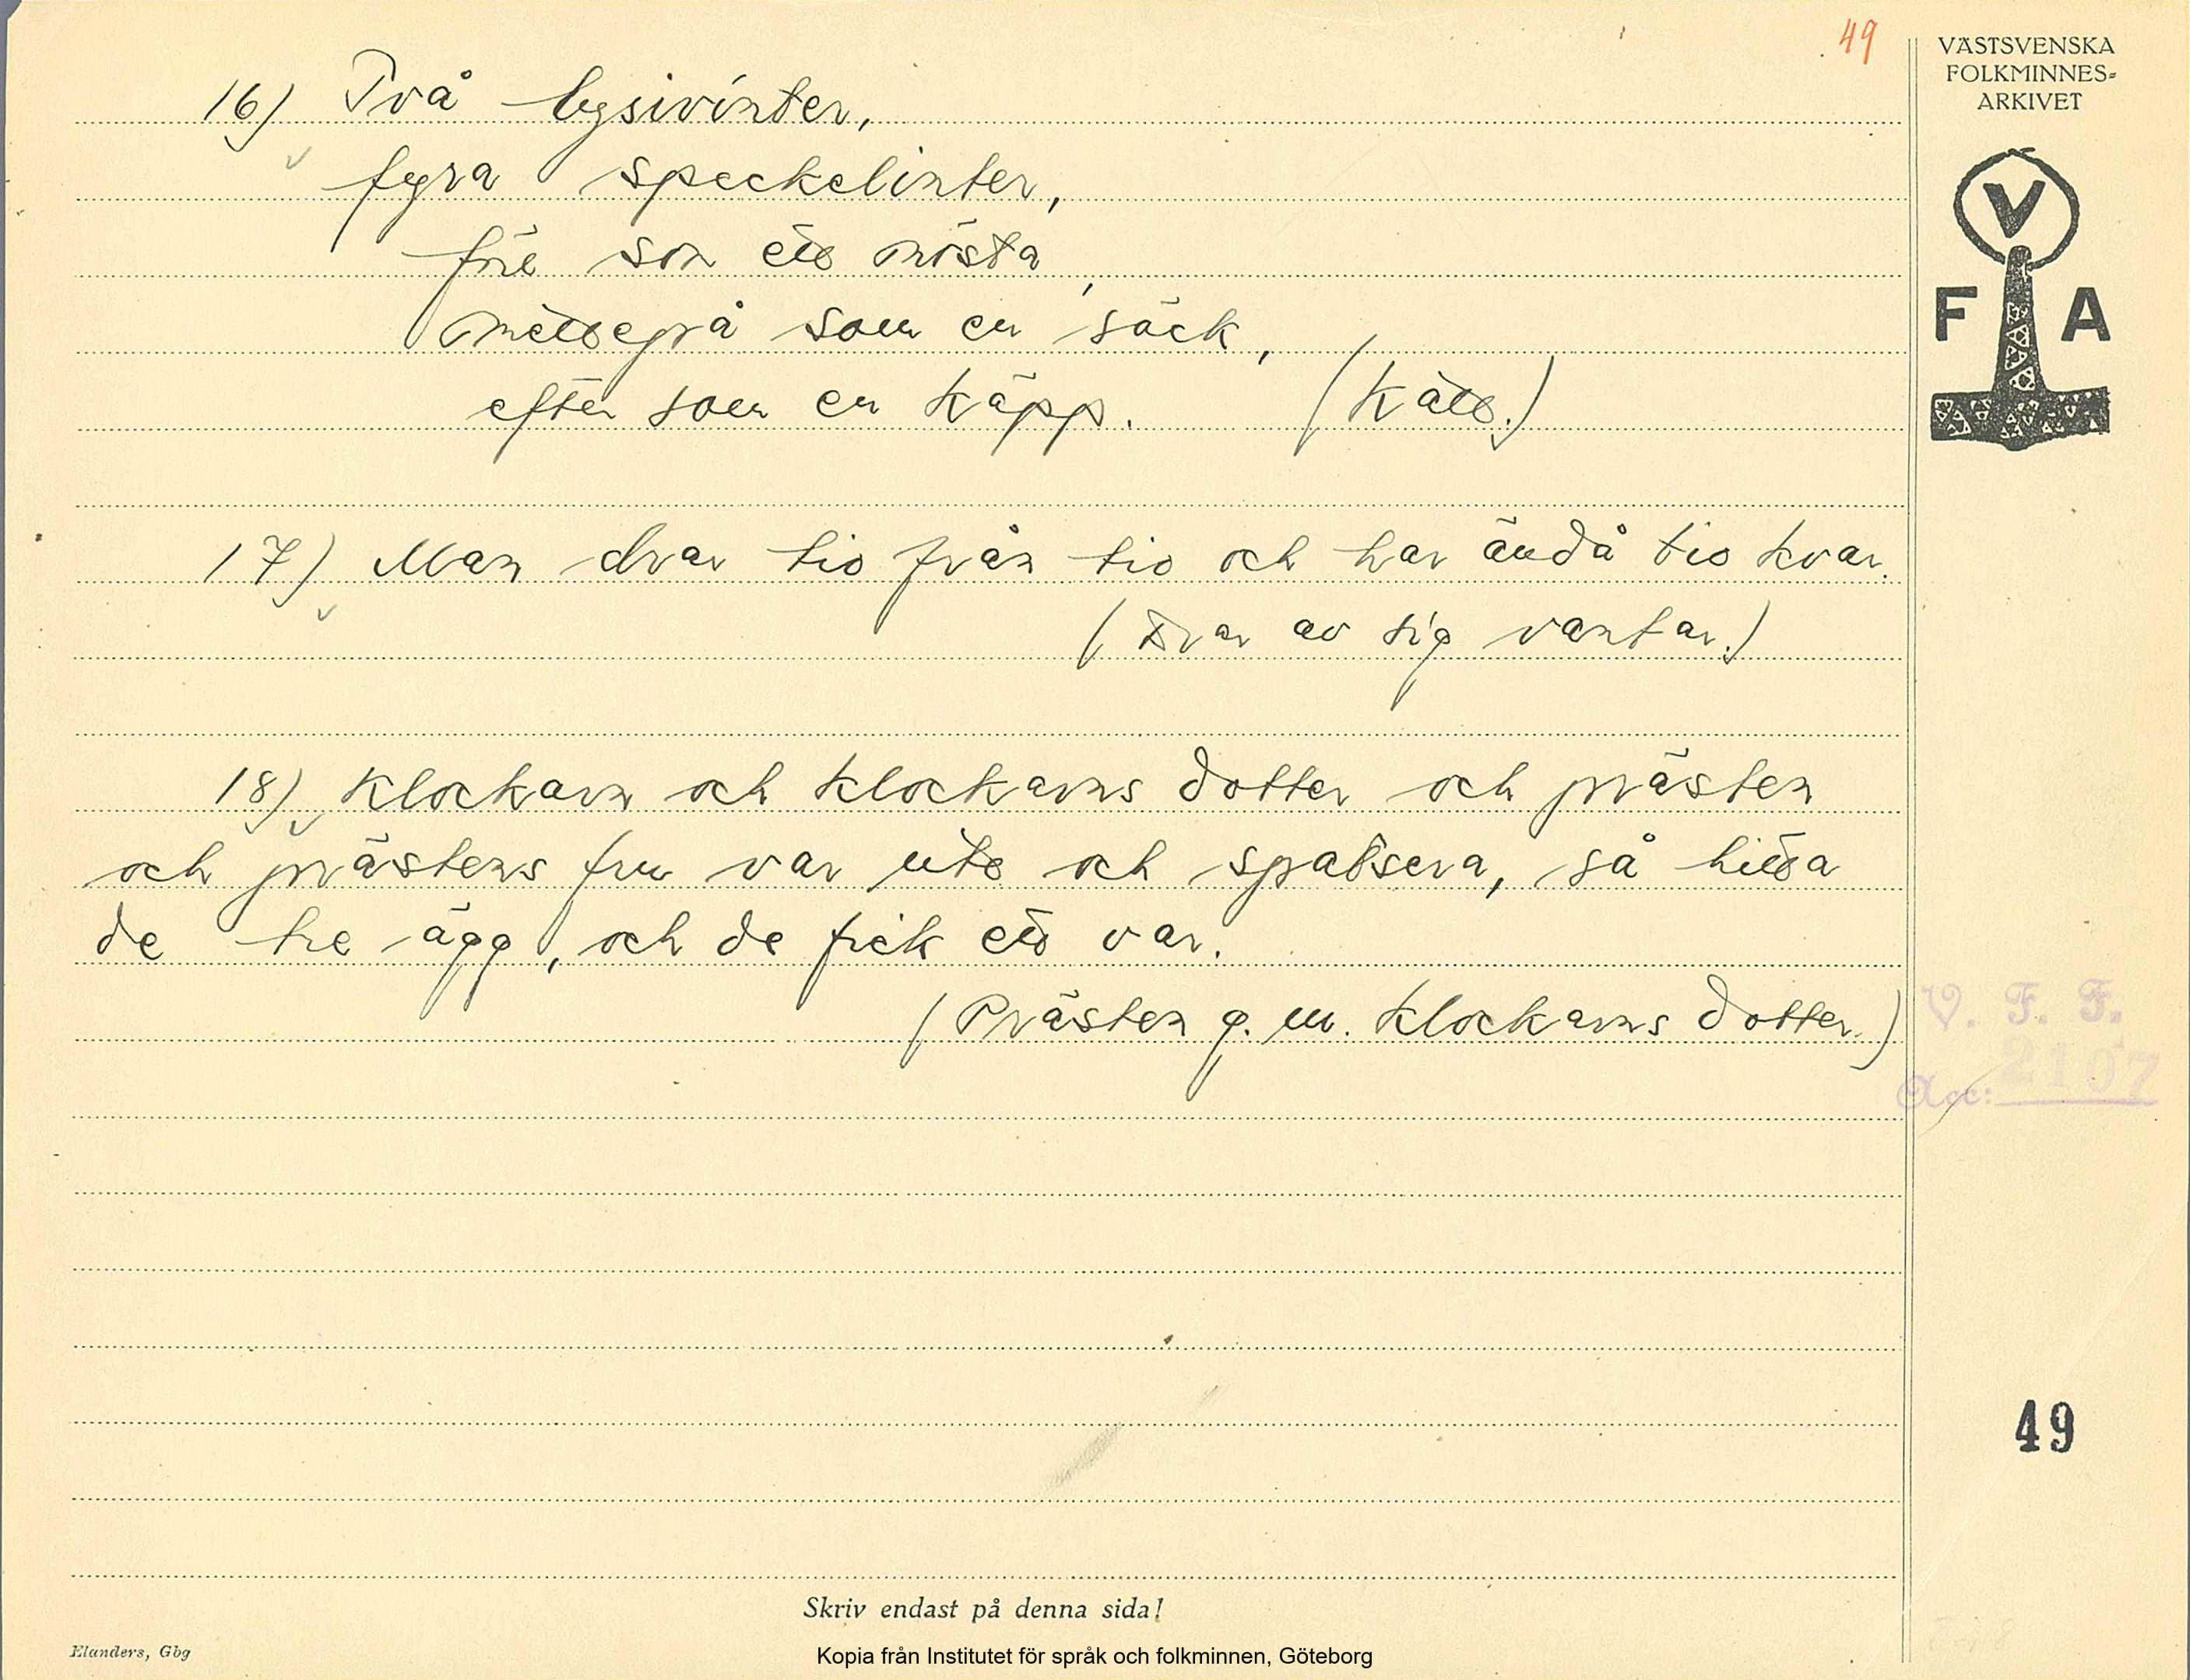 49
VÄSTSVENSKA
FOLKMINNES=
ARKIVET
V
F A
16) Två lysivinter,
fyra speckelinter,
före som ett nösta,
mettegrå som en säck,
efter som en käpp. (Katt.)
17) Man drar tio från tio och har ändå tio kvar.
(Drar av sig vantar.)
18) Klockarn och klockarns dotter och prästen
och prästens fru var ute och spatsera, så hitta
de tre ägg, och de fick ett var.
(Prästen g. m. klockarns dotter.)
V. F. F.
Acc: 2107
49
Skriv endast på denna sida!
Elanders, Gbg
Kopia från Institutet för språk och folkminnen, Göteborg